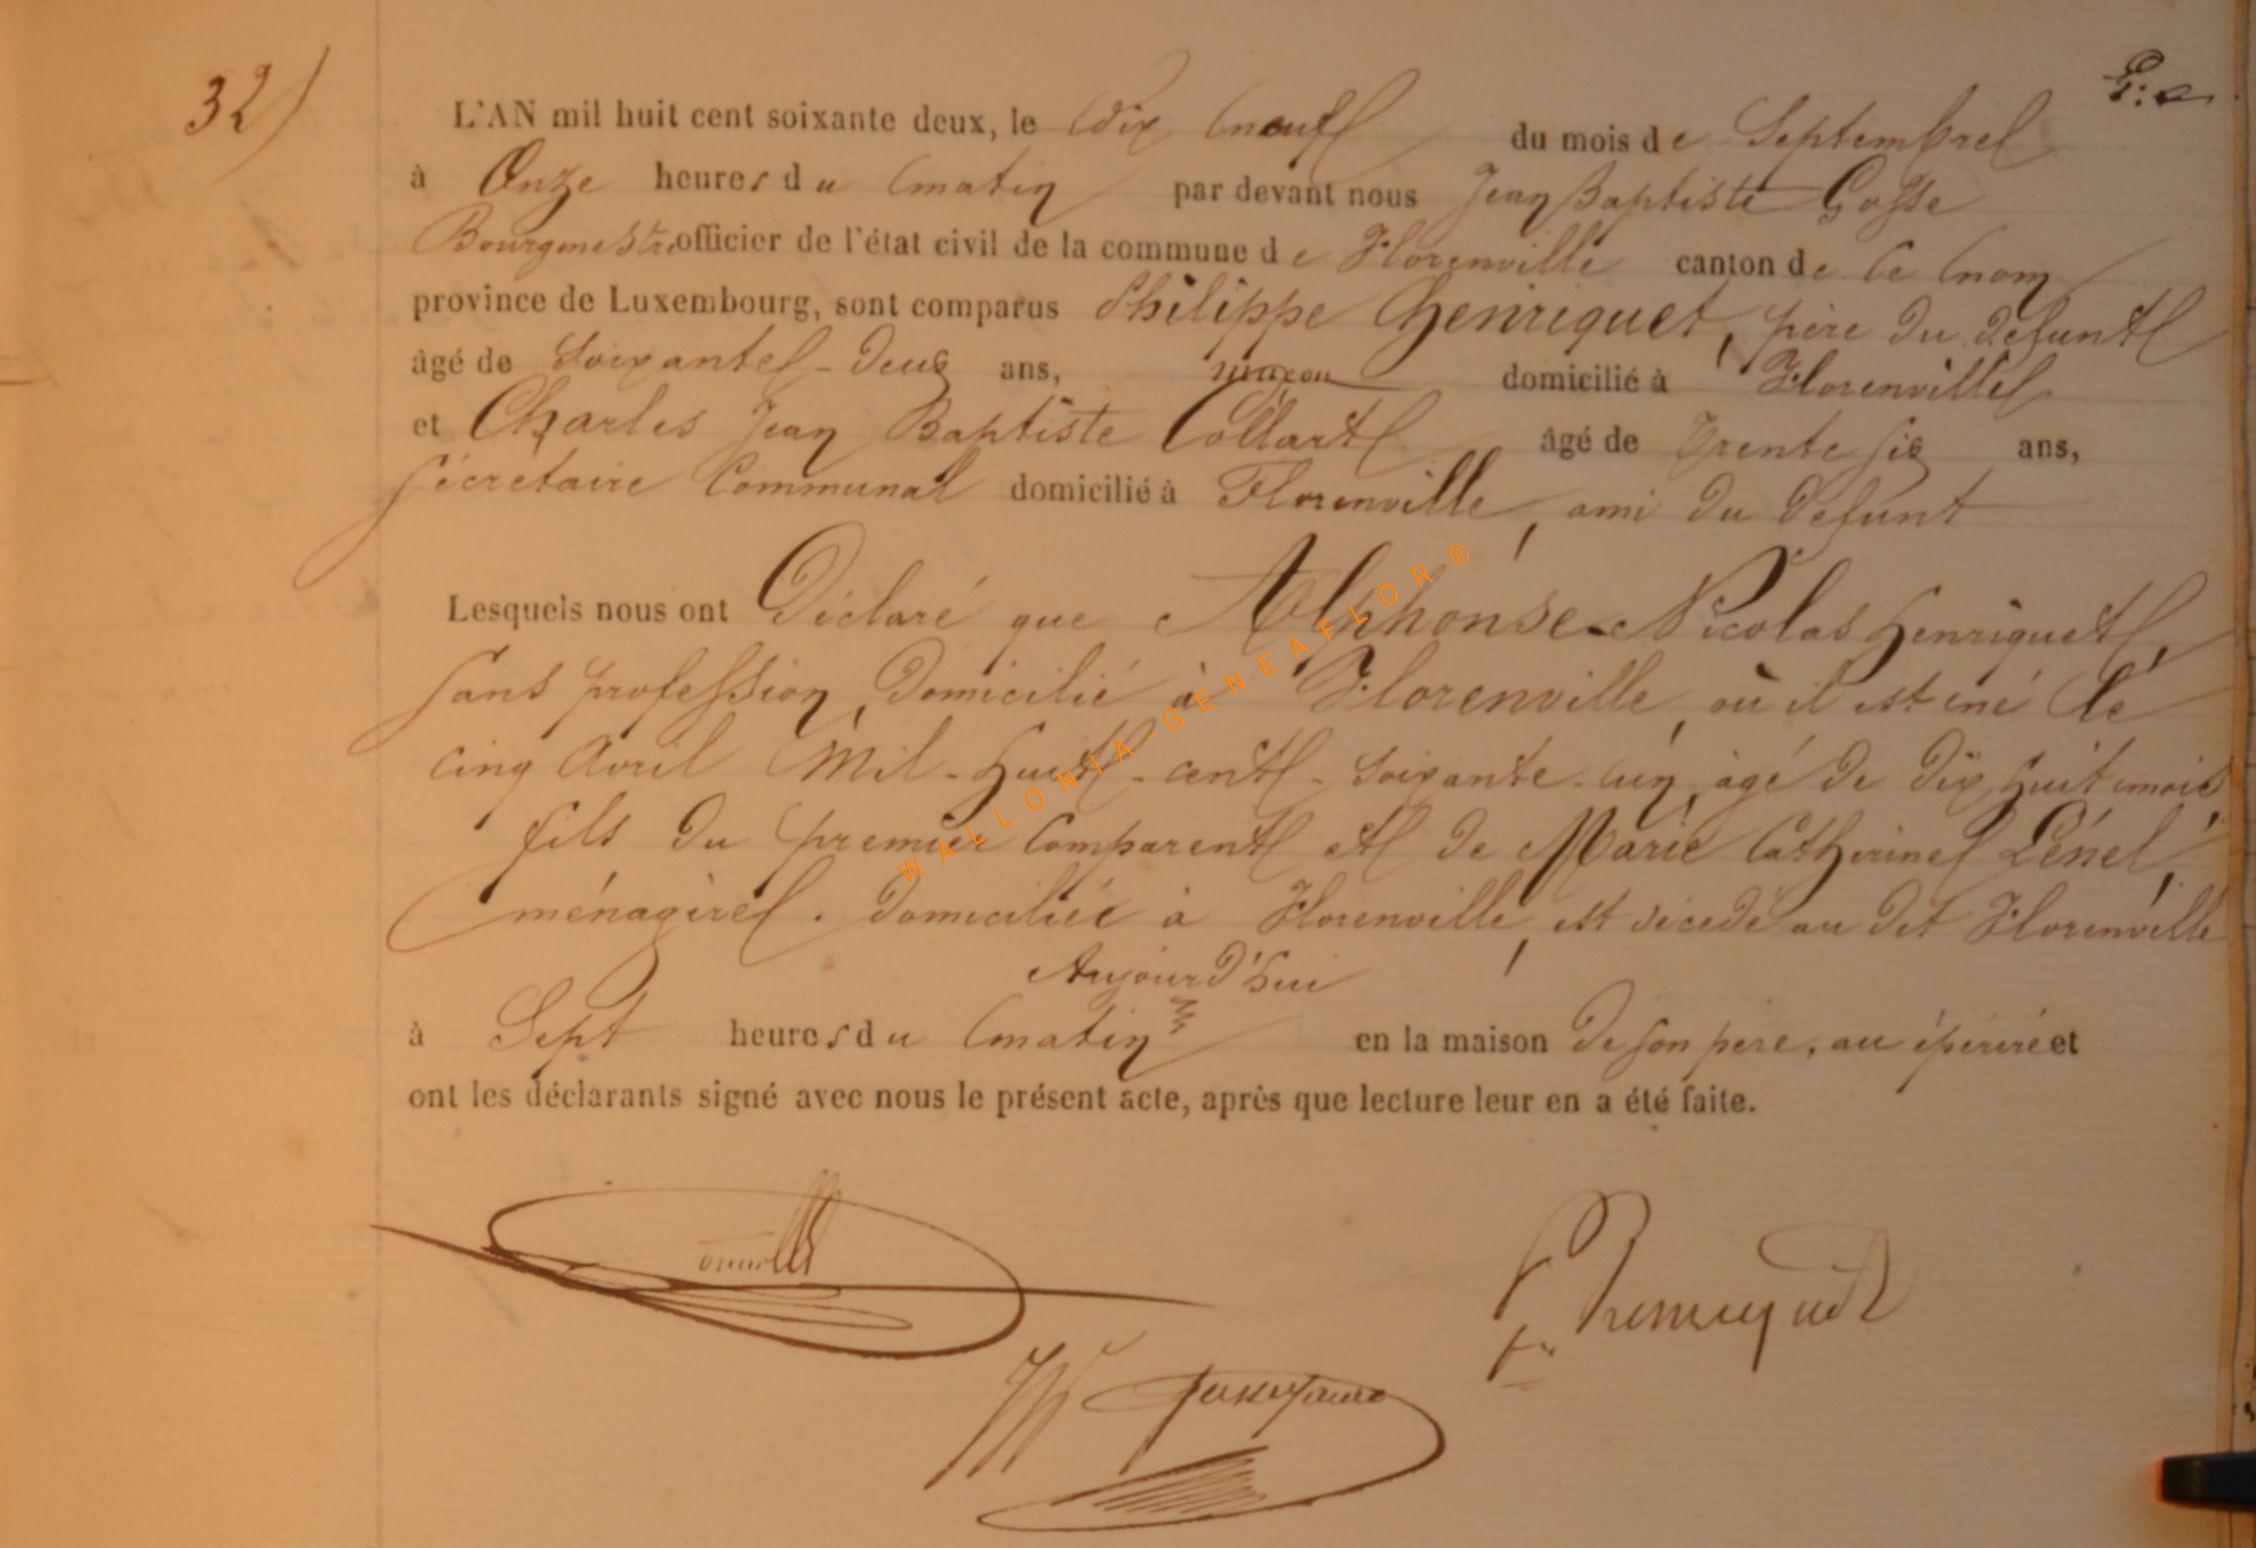 32)
L'AN mil huit cent soixante deux, le dix neuf du mois de Septembre
à Onze heures du matin par devant nous Jean Baptiste Gosse
Bourgmestre officier de l'état civil de la commune de Florenville canton de ce nom
province de Luxembourg, sont comparus Philippe Henriquet, père du défunt
âgé de soixante-deux ans, maçon domicilié à Florenville
et Charles Jean Baptiste Collart âgé de trente six ans,
sécrétaire Communal domicilié à Florenville, ami du défunt
Lesquels nous ont Déclaré que Alphonse-Nicolas Henriquet,
sans profession, domicilié à Florenville, où il est né le
cinq Avril Mil-huit-cent-soixante-un, âgé de dix huit mois,
fils du premier Comparent et de Marie Catherine Lénel,
ménagère. domiciliée à Florenville, est décédé au dit Florenville
Aujourd'hui
à Sept heures du matin en la maison de son père, au et
ont les déclarants signé avec nous le présent acte, après que lecture leur en a été faite.
Henriquet
WALLONIA-GENEAFLOR®